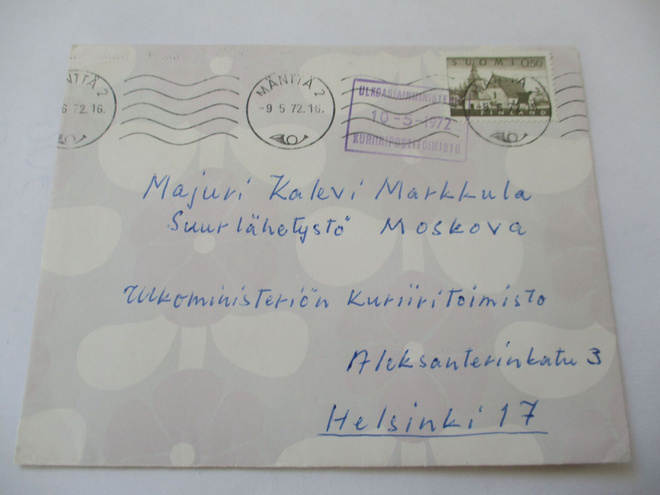 MÄNTTÄ 2
6 72.16.
MÄNTTÄ 2
-9.5 72.16.
ULKOASIAINMINISTERIÖ
10-5-1972
KURIIRIPOSTITOIMISTO
SUOMI 0,50
FINLAND
Majuri Kalevi Markkula
Suurlähetystö Moskova
Ulkoministeriön Kuriiritoimisto
Aleksanterinkatu 3
Helsinki 17